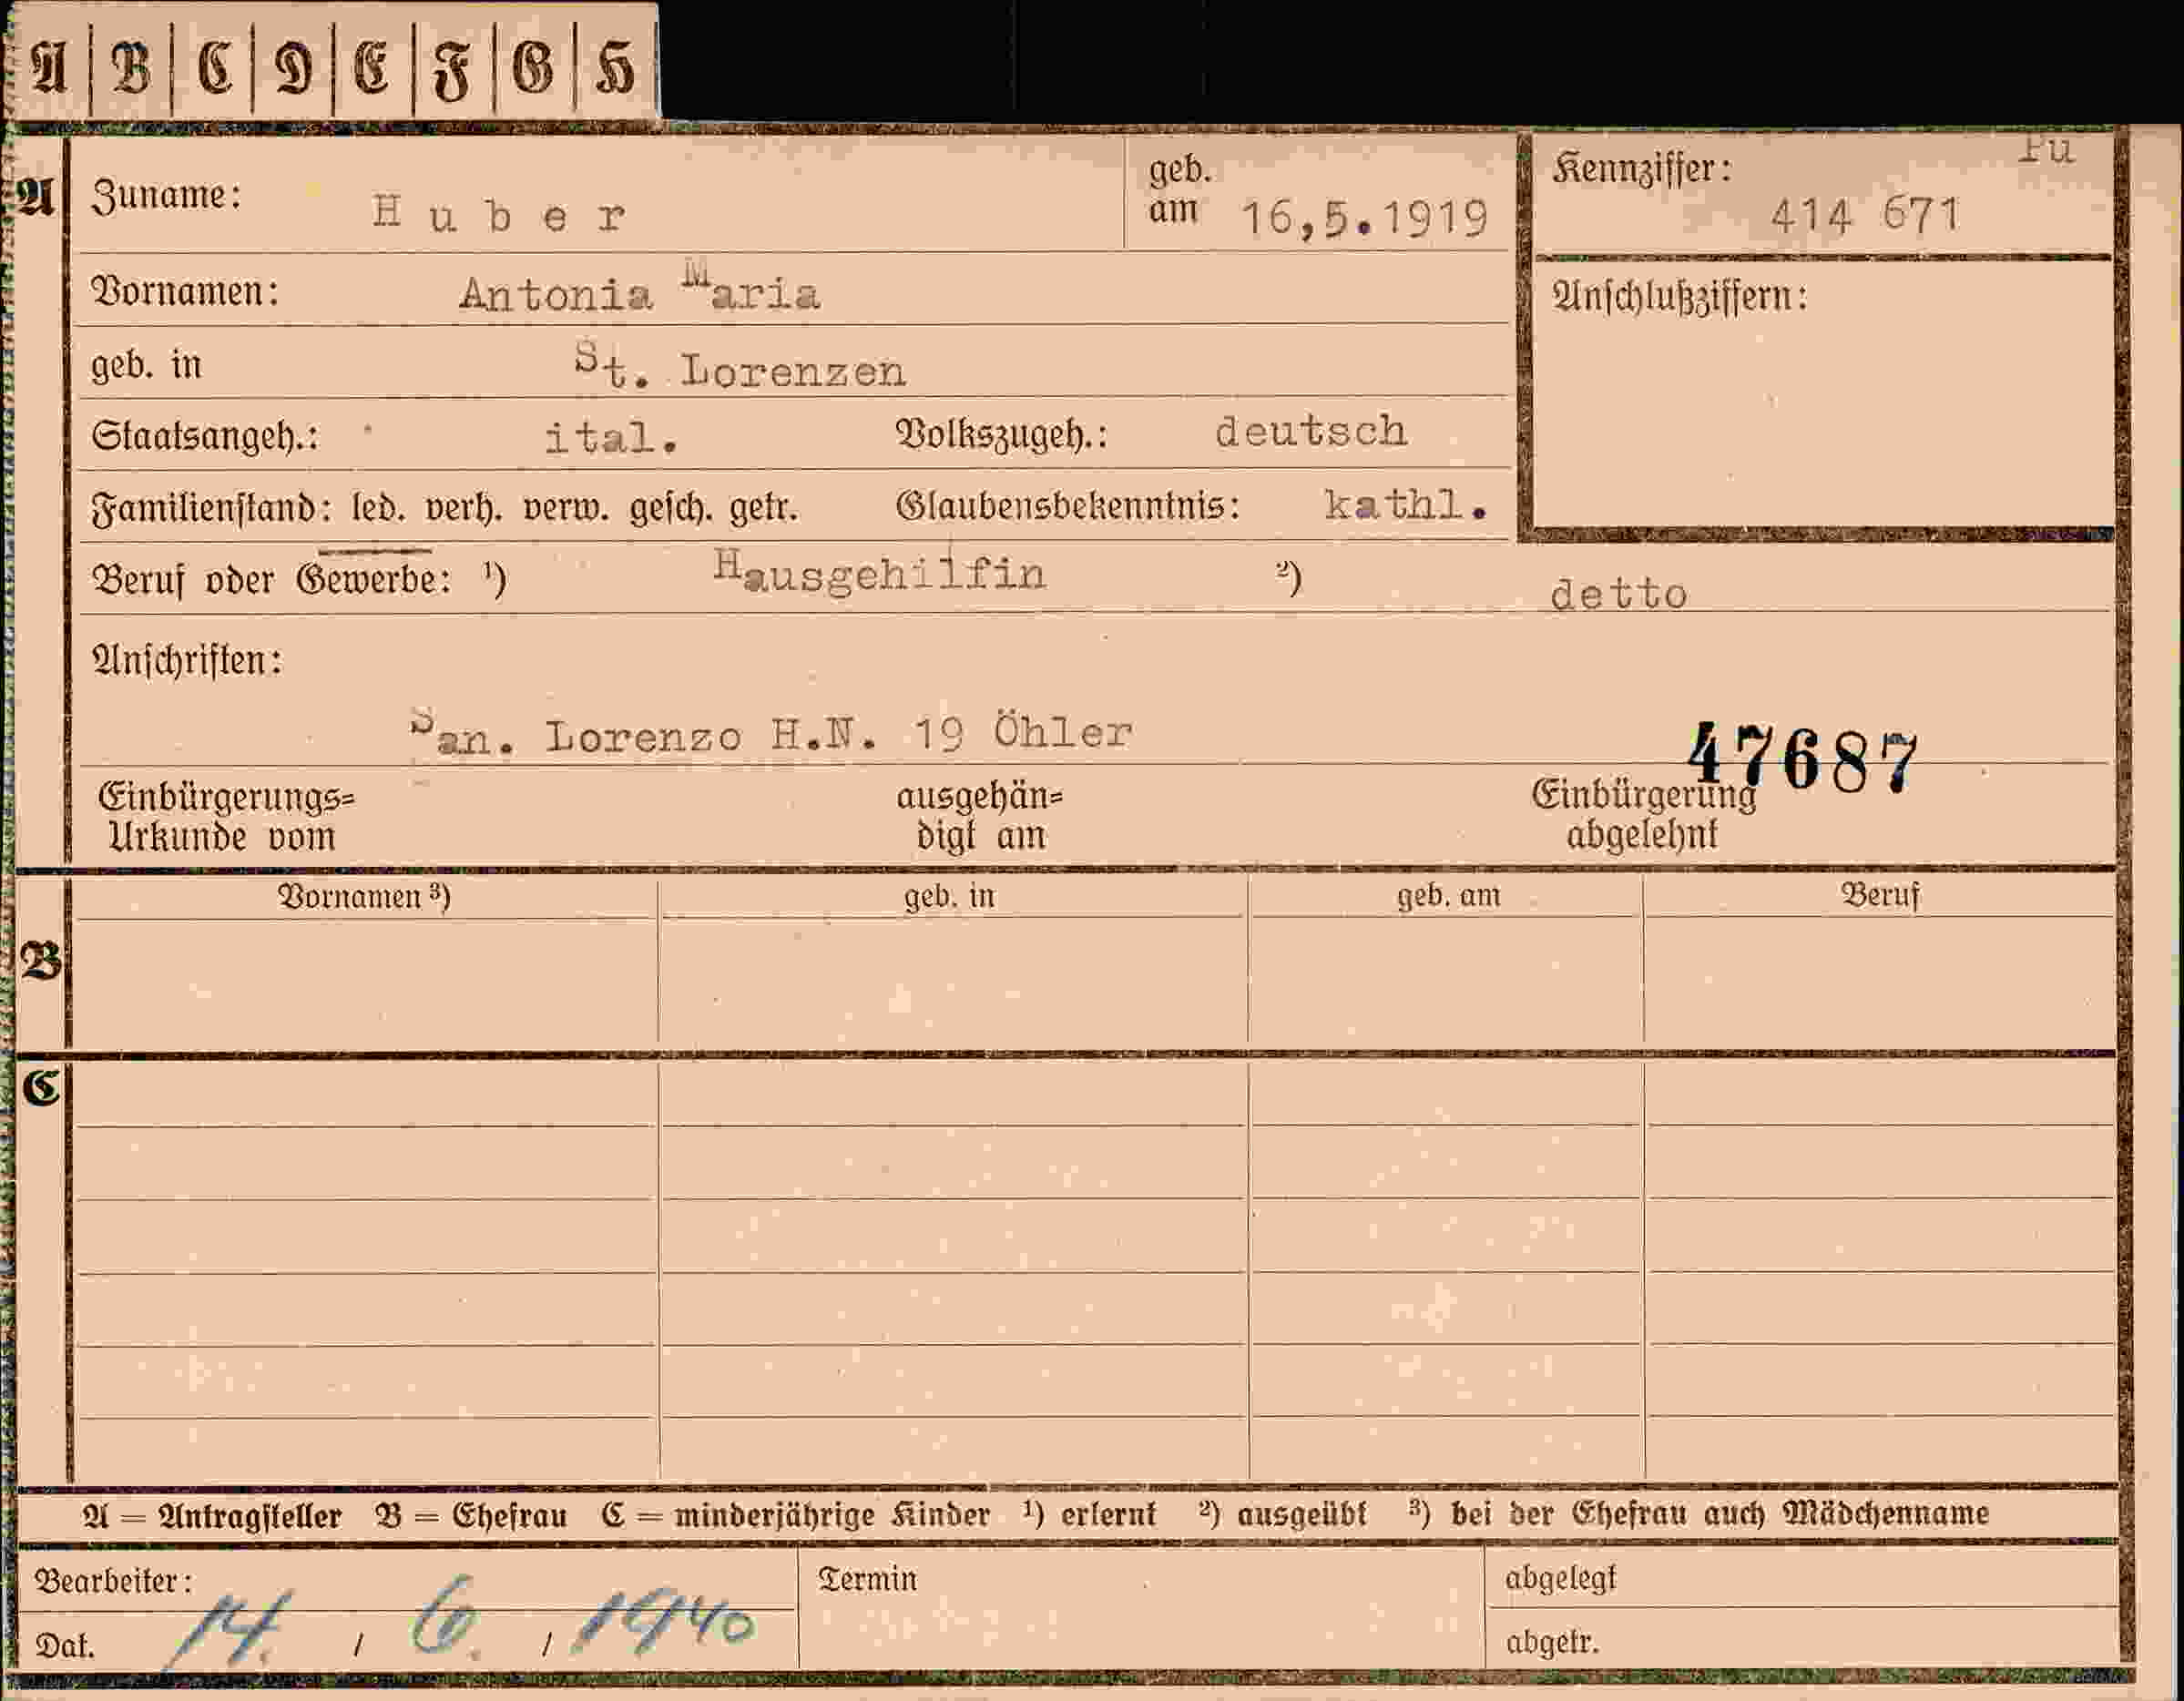 A | B | C | D | E | F | G | H
A Zuname: Huber geb. am 16,5.1919 Kennziffer: 414 671
Vornamen: Antonia Maria Anschlußziffern:
geb. in St. Lorenzen
Staatsangeh.: ital. Volkszugeh.: deutsch
Familienstand: led. verh. verw. gesch. getr. Glaubensbekenntnis: kathl.
Beruf oder Gewerbe: ¹) Hausgehilfin ²) detto
Anschriften:
San. Lorenzo H.N. 19 Öhler
47687
Einbürgerungs= ausgehän= Einbürgerung
Urkunde vom digt am abgelehnt
Vornamen ³) geb. in geb. am Beruf
B
C
A = Antragsteller B = Ehefrau C = minderjährige Kinder ¹) erlernt ²) ausgeübt ³) bei der Ehefrau auch Mädchenname
Bearbeiter: Termin abgelegt
Dat. 14. / 6. / 1940 abgetr.